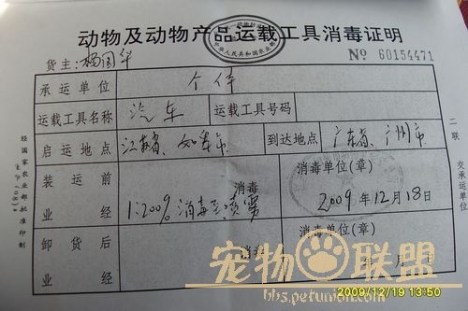 动物及动物产品运载工具消毒证明
货主:杨国华
№ 60154471
承运单位 个体
运载工具名称 汽车 运载工具号码
启运地点 江苏省、如东市 到达地点 广东省、广州市
装运前业经 1:200% 消毒 消毒单位(章)
2009年12月18日
卸货后业经 消毒 消毒单位(章)
年 月 日
二联 交承运单位
宠物联盟
bbs.petunion.com
2009/12/19 13:50